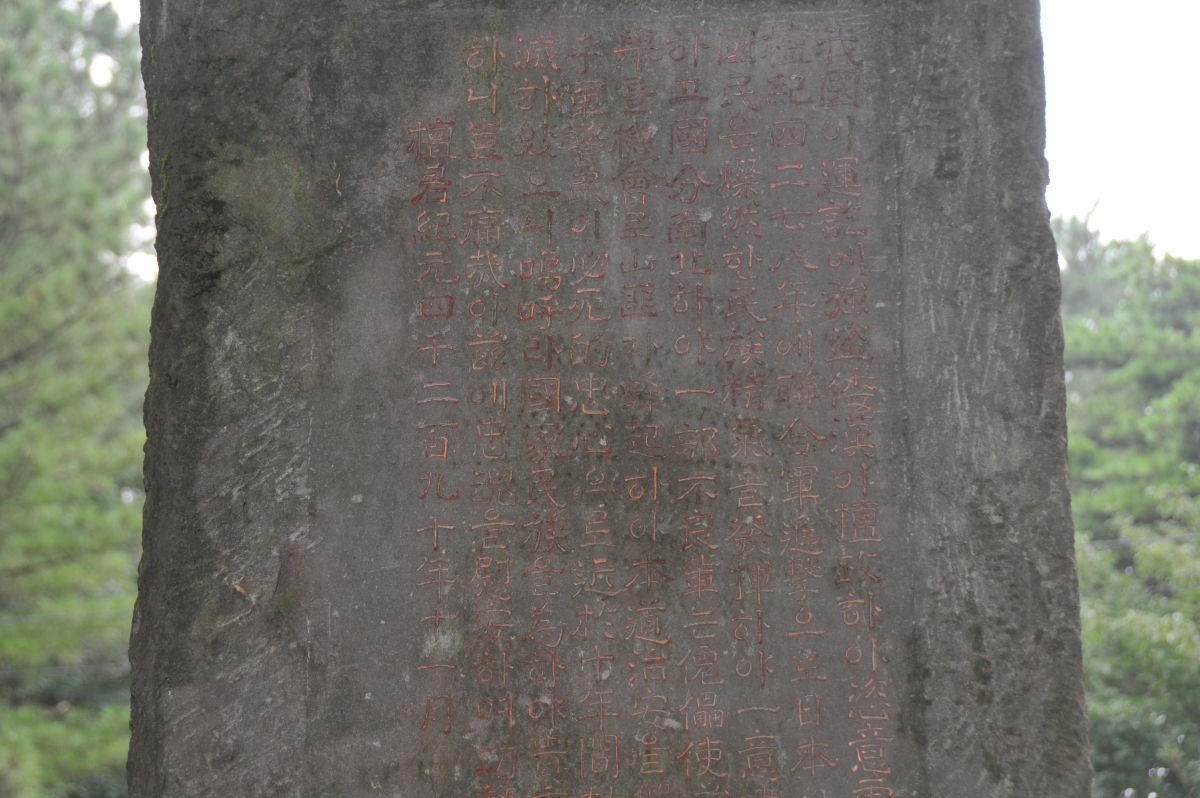 我國이運訖에強盜倭漢이檀政하야恣意
檀紀四二七八年에聯合軍進擊으로日本
國民은燦然한民族精氣를發揮하야一意
하고國分南北하야一部不良輩는傀儡使
機會로山匪가蜂起하야本道治安을
軍警民이必死的忠心으로近於十年間
滅하였으니嗚呼라國家民族을為하야
하니豈不痛哉아玆에忠魂을慰安하며
檀君紀元四千二百九十年十一月